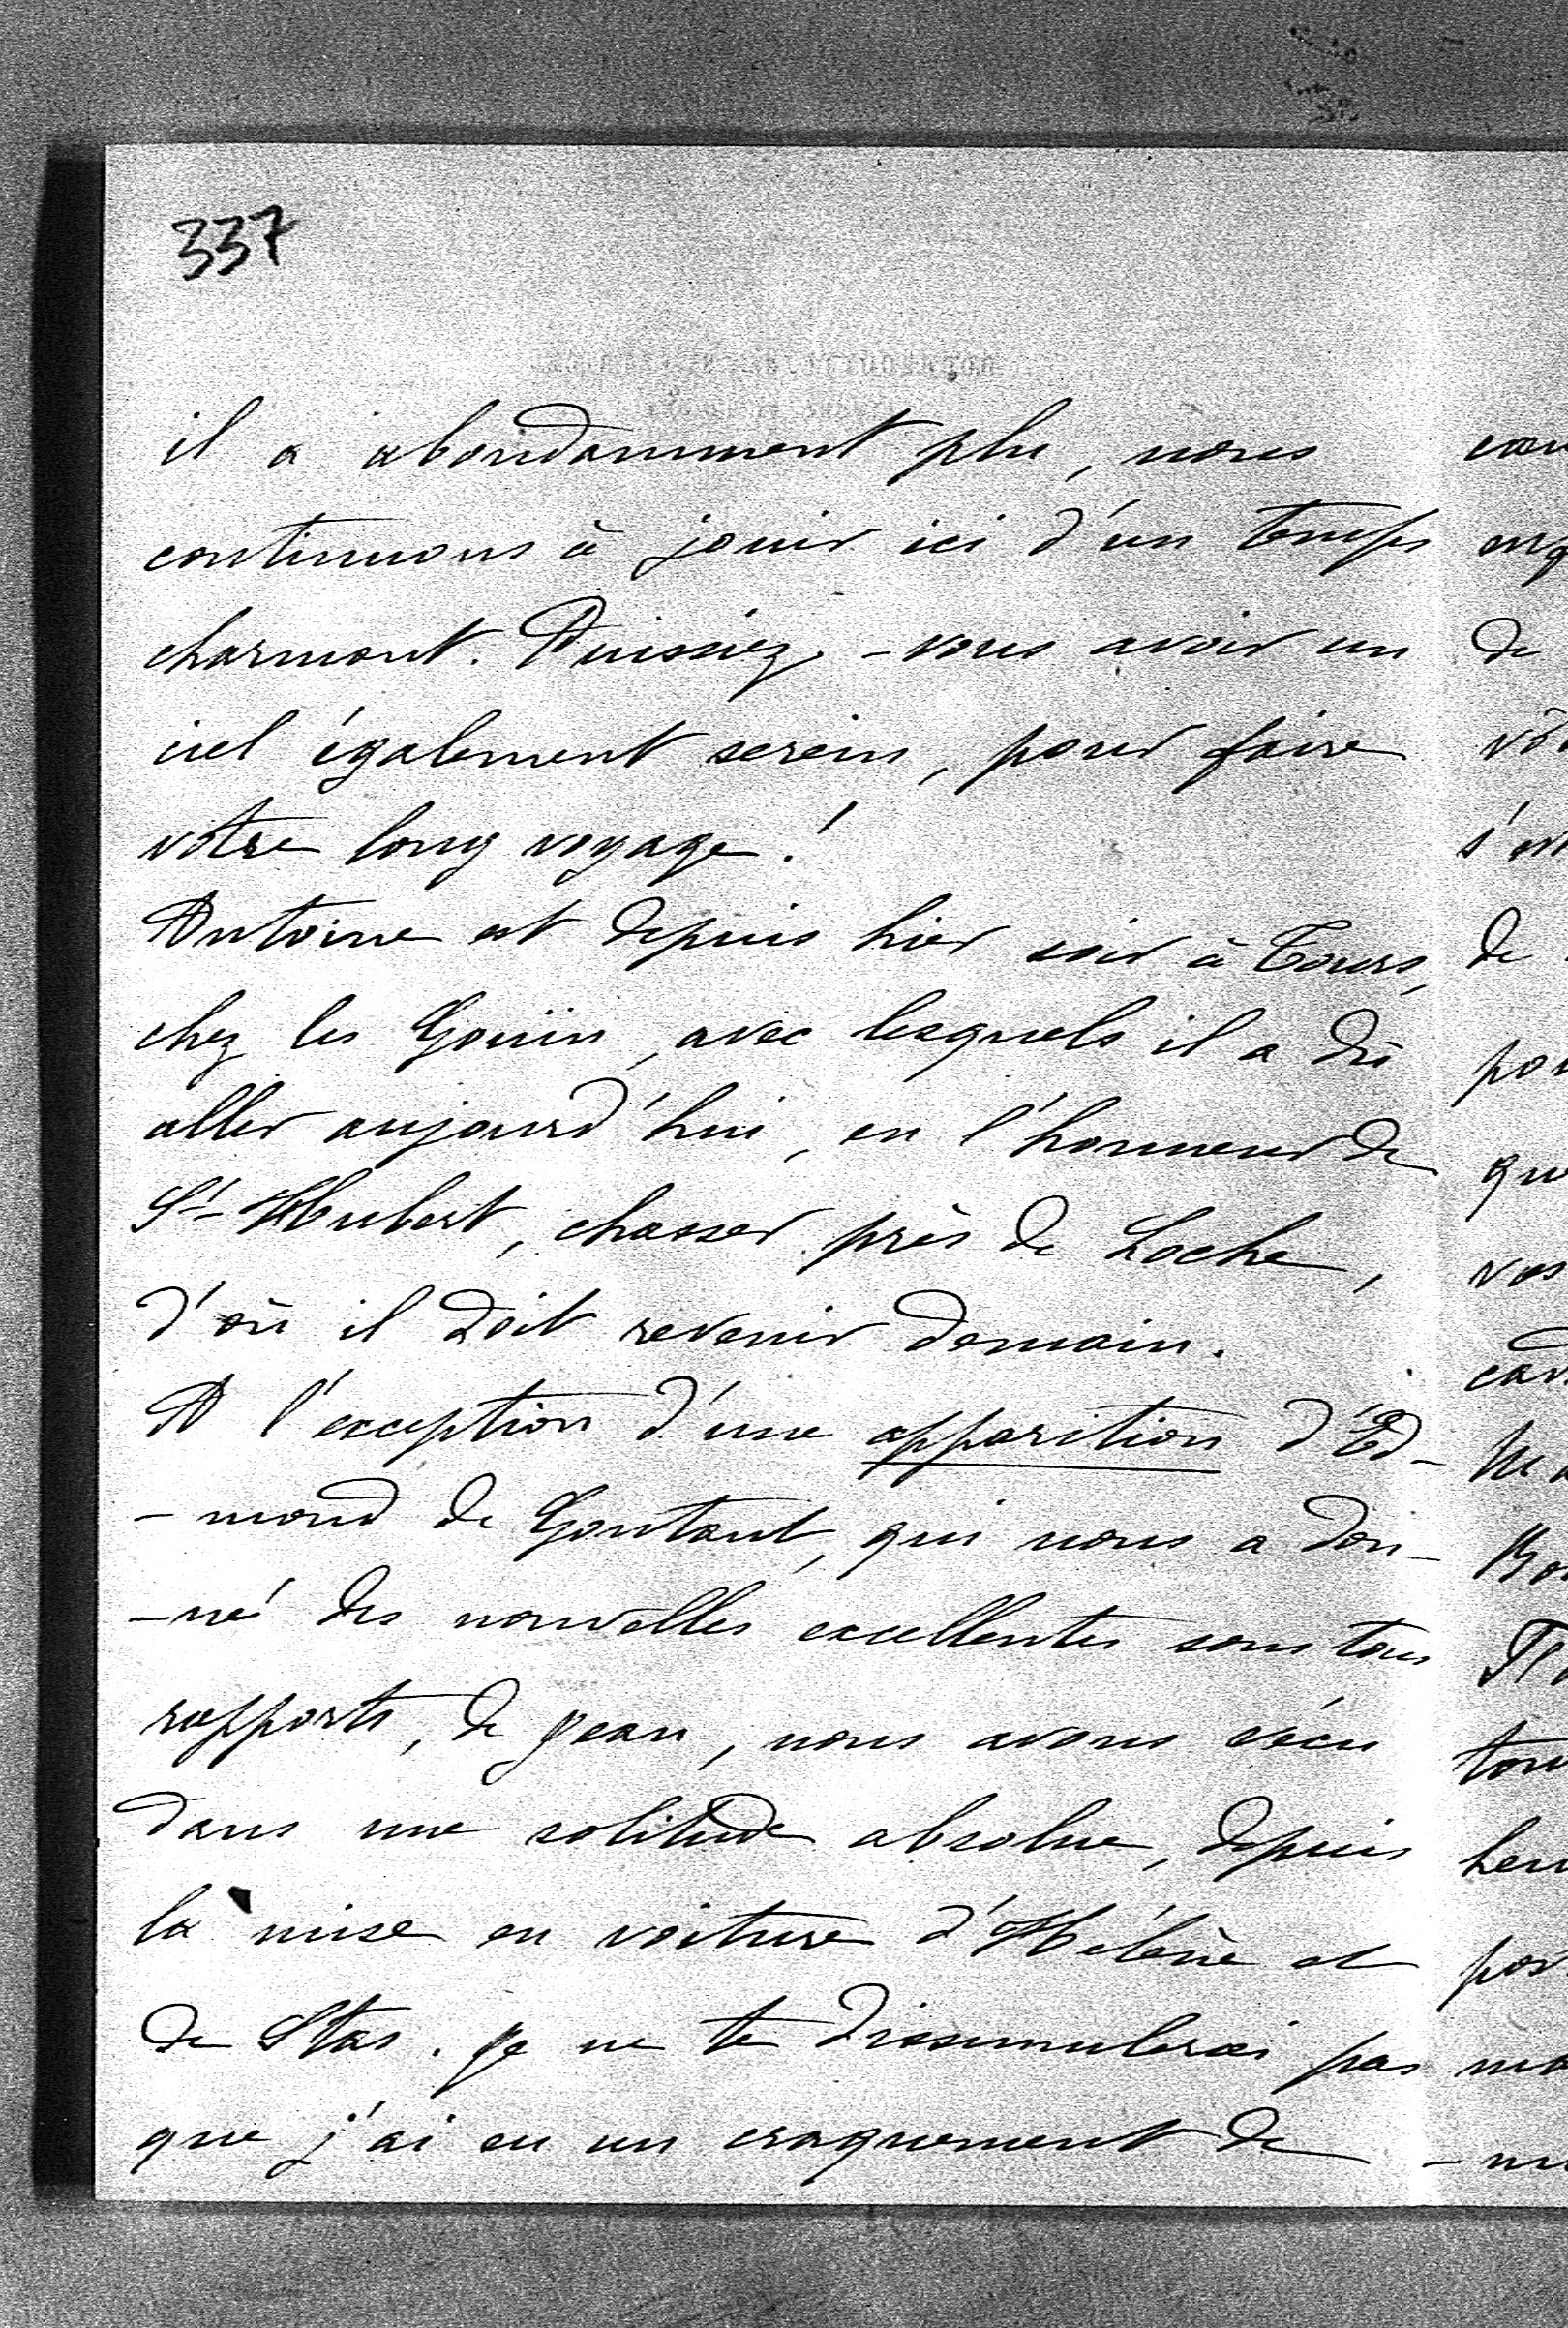 337
il a abondamment plu, nous
continuons à jouir ici d'un temps
charmant. Puissiez-vous avoir un
ciel également serein, pour faire
votre long voyage !
Antoine est depuis hier soir à Tours,
chez les Goüin, avec lesquels il a dû
aller aujourd'hui, en l'honneur de
St Hubert, chasser près de Loche,
d'où il doit revenir demain.
A l'exception d'une apparition d'Ed-
-mond de Gontaut, qui nous a don-
-né des nouvelles excellentes sous tous
rapports, de Jean, nous avons vécu
dans une solitude absolue, depuis
la mise en voiture d'Hélène et
de Stas. Je ne te dissimulerai pas
que j'ai eu un craquement de